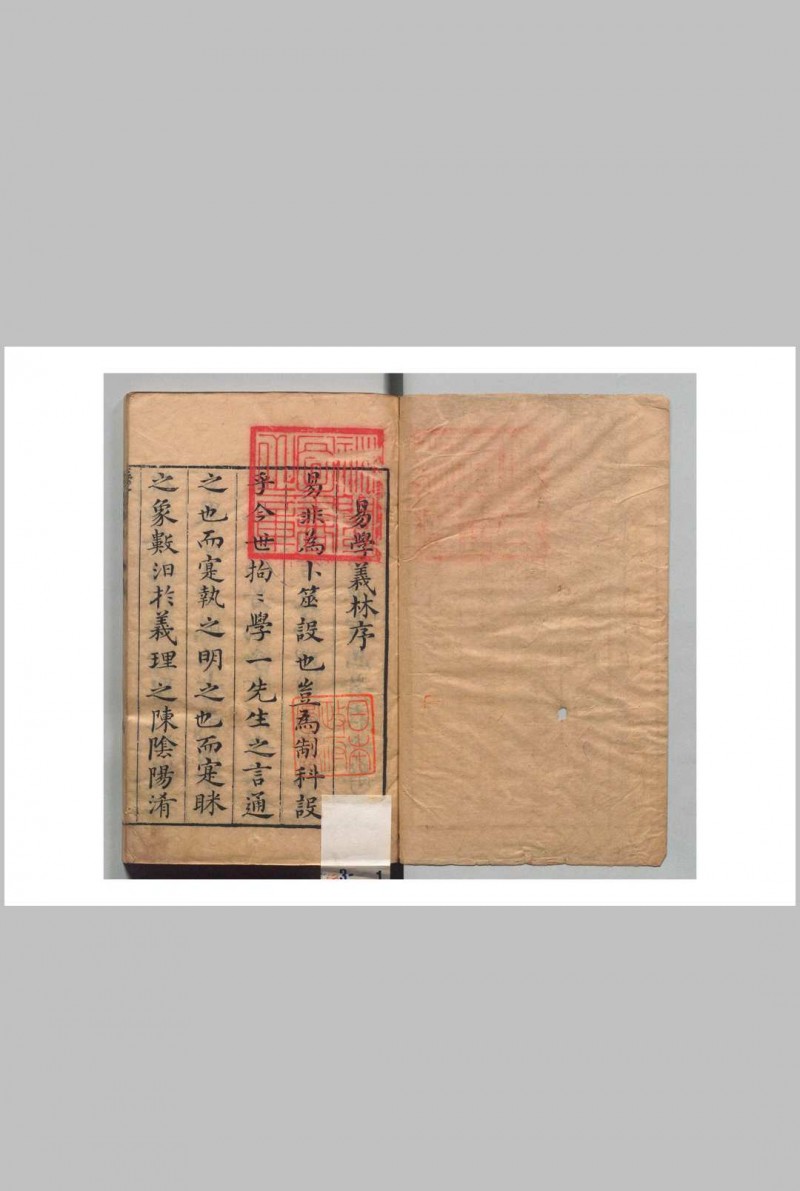 易學義林序
易非為卜筮設也豈為制科設
乎今世拘〻學一先生之言通
之也而寔執之明之也而寔眯
之象數汩於義理之陳陰陽淆
3- 1